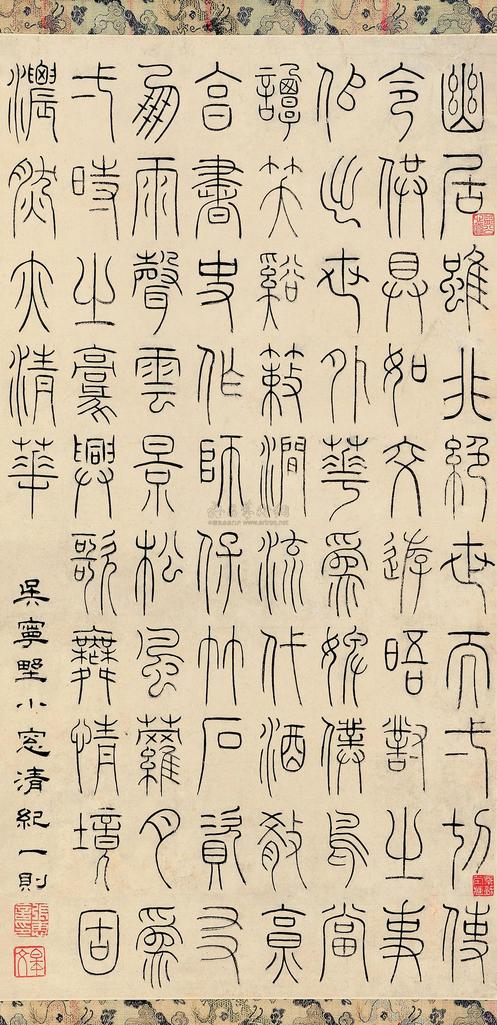 幽居雖非絕世而弌切使
令供具如交遊晤對之事
似出世外華為婢僕鳥當
譚笑谿蔌澗流代酒殽烹
享書史作師保竹石資友
朋雨聲雲景松風蘿月為
弌時之豪興歌舞情境固
濃然亦清華
吳寧野小窓清紀一則